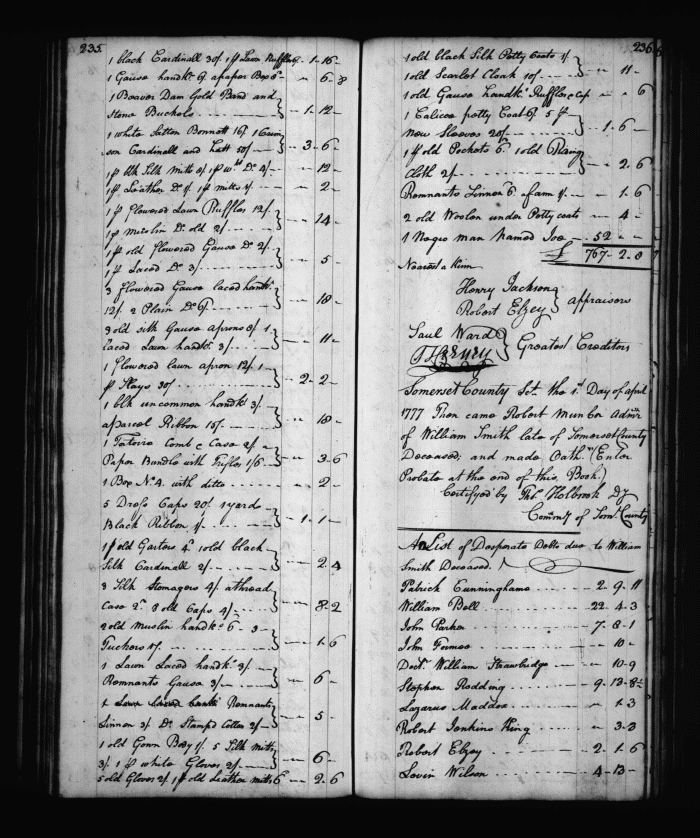 235
1 black Cardinall 30/. 1 pr Lawn Ruffles 6/. - 1 - 16 -
1 Gause handk. 6/. a paper Box 8d - - 6 - 8
1 Beaver Dam Gold Band and
Stone Buckols - 1 - 12 -
1 white Sattin Bonnett 16/. 1 Crim
son Cardinall and Hatt 50/ - 3 - 6 -
1 pr blk Silk Mitts 8/. 1 pr wt. Do. 4/ - - 12 -
1 pr Leather Do. 1/. 1 pr mitts 1/. - - 2 -
1 pr Flowered Lawn Ruffles 12/.
1 pr Muslin Do. old 2/ - - 14 -
1 pr old flowered Gause Do. 2/.
1 pr Laced Do. 3/ - - 5 -
3 Flowered Gause laced handk.
12/. 2 Plain Do. 6/. - - 18 -
3 old silk Gause aprons 8/. 1
Laced Lawn handk. 3/. - - 11 -
1 Flowered lawn apron 12/. 1
pr Stays 30/ - 2 - 2 -
1 blk uncommon handk. 3/.
a parcel Ribbon 15/. - - 18 -
1 Tortoise Comb & Case 2/. a
Paper Bundle with Trifles 1/6 - - 3 - 6
1 Box No. 4. with ditto - - 2 -
5 Dress Caps 20/. 1 yard
Black Ribbon 1/. - 1 - 1 -
1 pr old Garters 4d. 1 old black
Silk Cardinall 2/. - - 2 - 4
3 Silk Stomagers 4/. a thread
Case 2d. 8 old Caps 4/. - - 8 - 2
2 old Muslin handk. 6d. 3
Tuckers 1/. - - 1 - 6
1 Lawn Laced handk. 3/.
Remnants Gause 3/. - - 6 -
Remnants
Linnen 3/. Do. Stampd Cotton 2/. - - 5 -
1 old Gown Body 1/. 5 Silk Mitts
3/. 1 pr white Gloves 2/. - - 6 -
5 old Gloves 2/. 1 pr old Leather mitts 6d - - 2 - 6
236
1 old black Silk Petty Coats 1/.
1 old Scarlet Cloak 10/. - - 11 -
1 old Gause handk. Ruffles & Cap - - 6
1 Calico petty Coat 6/. 5 pr
New Sleeves 20/. - 1 - 6 -
1 pr old Pockets 6d. 1 old Riding
Cloth 2/. - - 2 - 6
Remnants Linnen 6d. a fann 1/. - - 1 - 6
2 old Woolen under Petty coats - - 4 -
1 Negro man Named Joe - 52 - -
£ 767 - 2 - 8
Nearest a Kinn
Henry Jackson
Robert Elzey } appraisers
Saul Ward
} Greatest Creditors
Somerset County Sct. the 1st. Day of april
1777 Then came Robert Admr.
of William Smith late of Somerset County
Deceased, and made Oath (Enter
Probate at the end of this Book)
Certifyed by Thos. Holbrook Dy
Comry. of Somt. County
A List of Desperate Debts due to William
Smith Deceased.
Patrick Cunninghame - 2 - 9 - 11
William Bell - 22 - 4 - 3
John Parker - 7 - 8 - 1
John - - 10 -
Doct. William Strawbridge - - 10 - 9
Stephen Redding - 9 - 13 - 8½
Lazarus Maddox - - 1 - 3
Robert Jenkins King - - 3 - 3
Robert Elzey - 2 - 1 - 6
Levin Wilson - 4 - 13 -